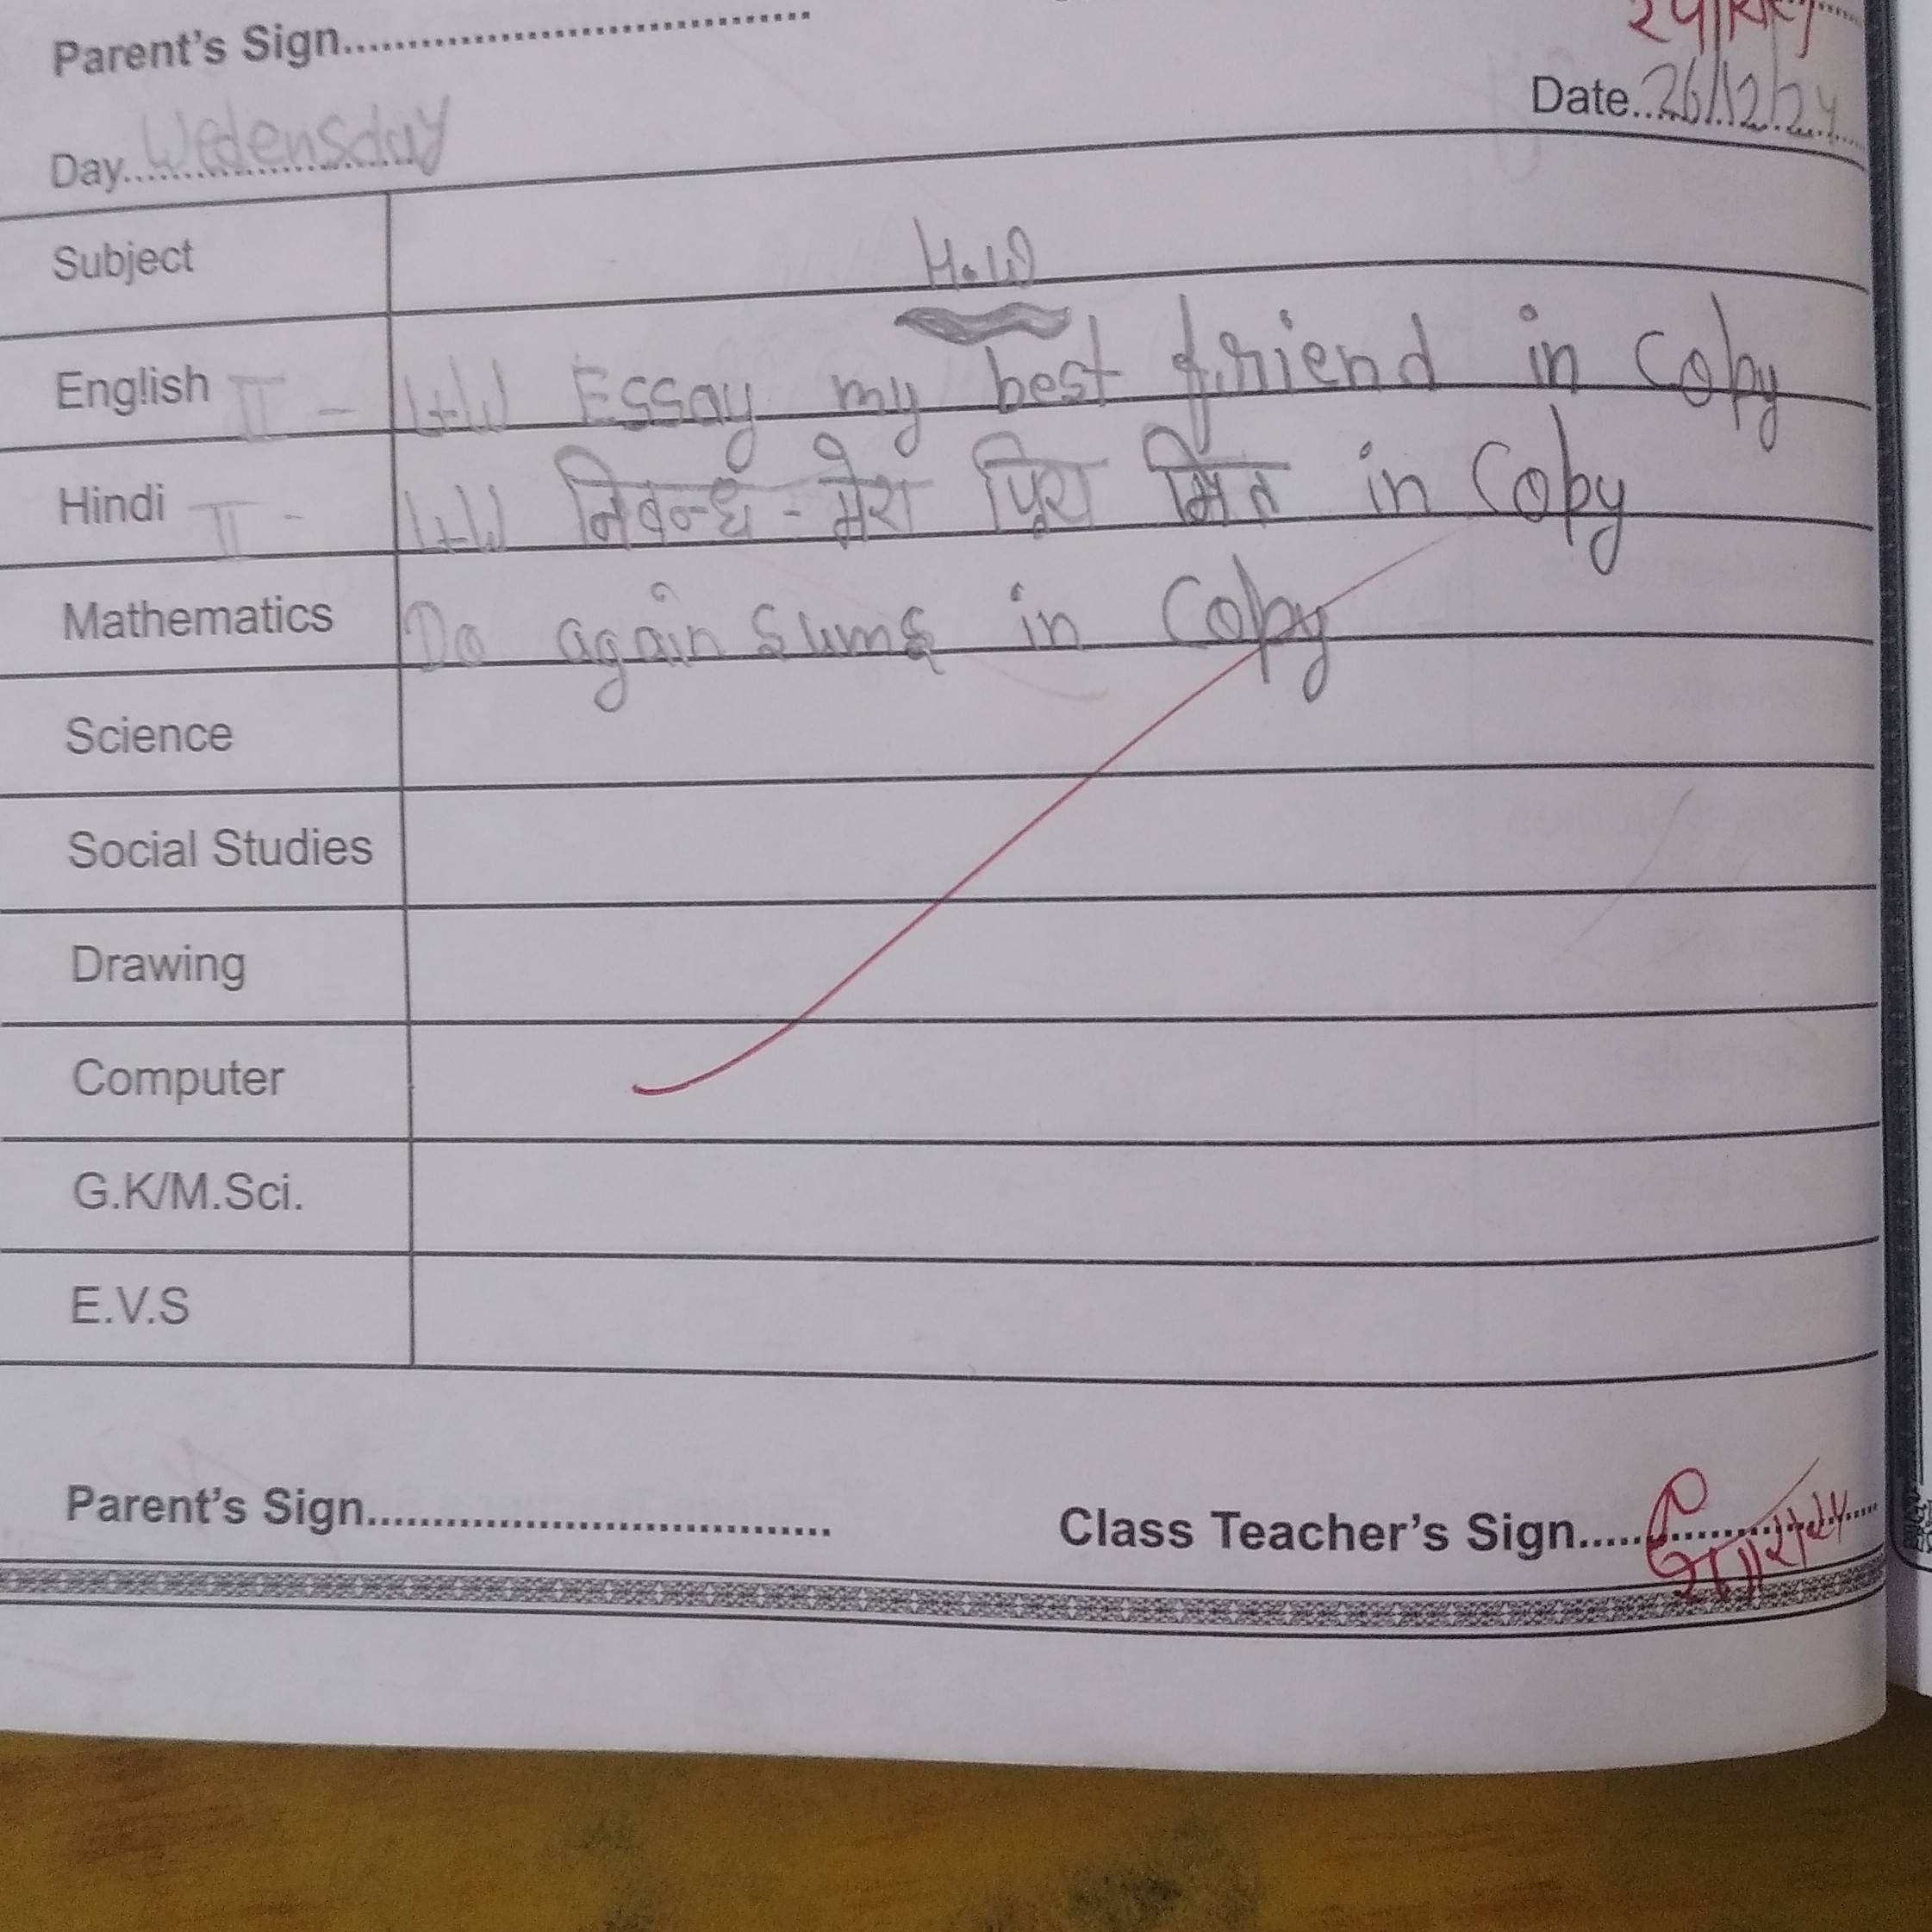 Parent's Sign..................................
Date..26/12/24
Day..Wedensday
Subject H.W
English II - L+W Essay my best friend in Copy
Hindi II - L+W निबन्ध - मेरा प्रिय मित्र in Copy
Mathematics Do again sums in Copy
Science
Social Studies
Drawing
Computer
G.K/M.Sci.
E.V.S
Parent's Sign..................................
Class Teacher's Sign.....